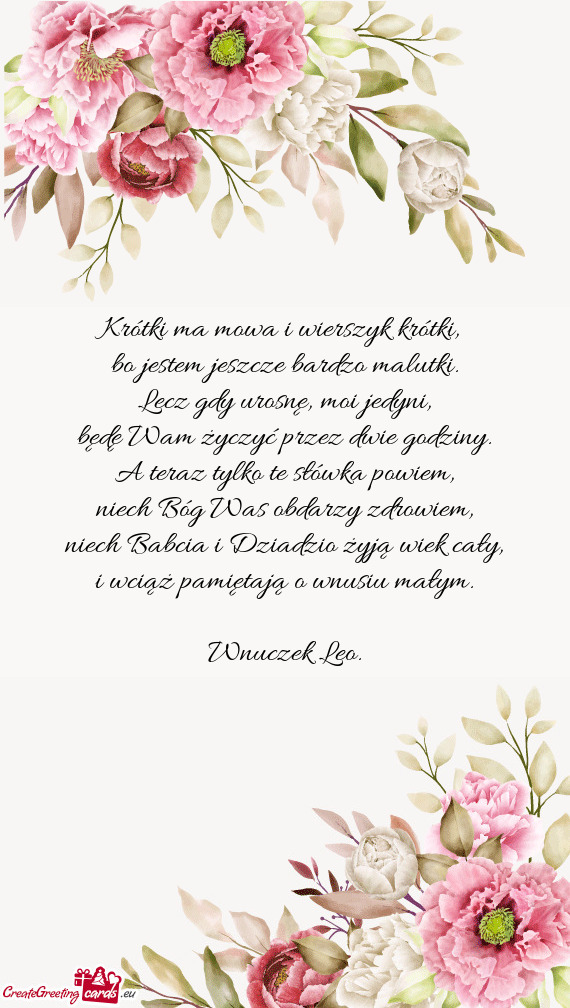 Krótki ma mowa i wierszyk krótki,
bo jestem jeszcze bardzo malutki.
Lecz gdy urosnę, moi jedyni,
będę Wam życzyć przez dwie godziny.
A teraz tylko te słówka powiem,
niech Bóg Was obdarzy zdrowiem,
niech Babcia i Dziadzio żyją wiek cały,
i wciąż pamiętają o wnusiu małym.
Wnuczek Leo.
CreateGreeting cards .eu